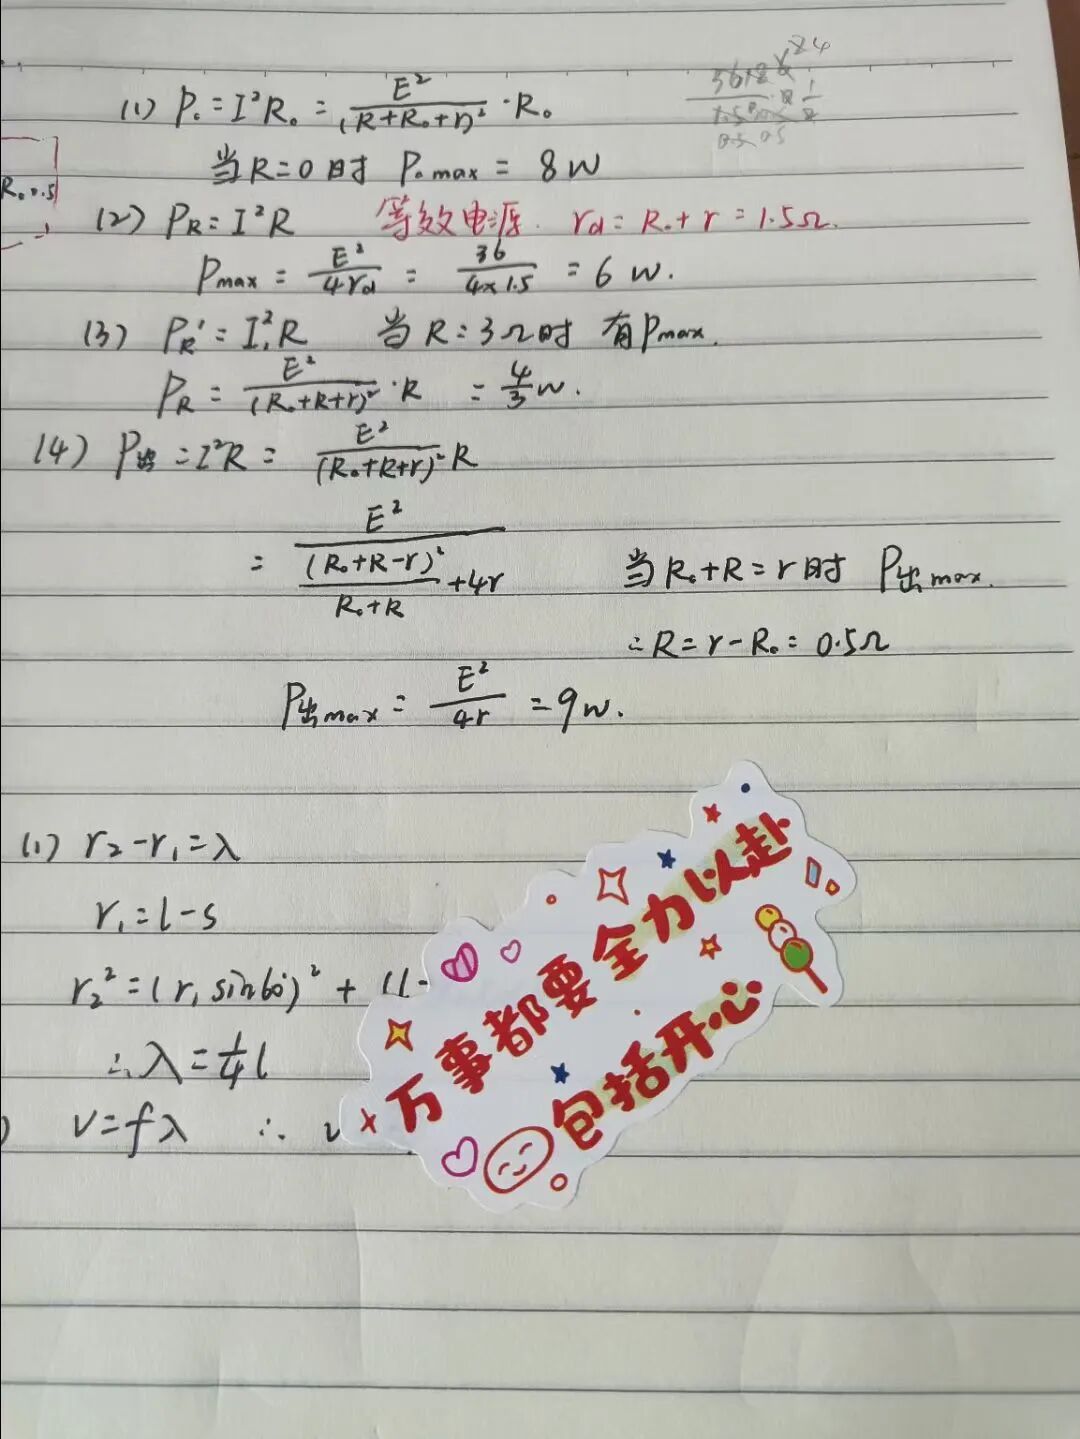 (1) P₀=I²R₀=E²/(R+R₀+r)²·R₀
当R=0时 P₀max=8W
R₀ 0.5
(2) PR=I²R 等效电源. rd=R₀+r=1.5Ω.
Pmax=E²/4rd=36/4×1.5=6W.
(3) PR'=I₁²R 当R=3Ω时 有Pmax.
PR=E²/(R₀+R+r)²·R =4/3W.
(4) P出=I²R=E²/(R₀+R+r)²R
=E²/((R₀+R-r)²/(R₀+R)+4r) 当R₀+R=r时 P出max.
∴R=r-R₀=0.5Ω
P出max=E²/4r=9W.
(1) r₂-r₁=λ
r₁=l-s
r₂²=(r₁sin60)²+(l-
∴λ=1/4l
) v=fλ ∴v
万事都要全力以赴
包括开心